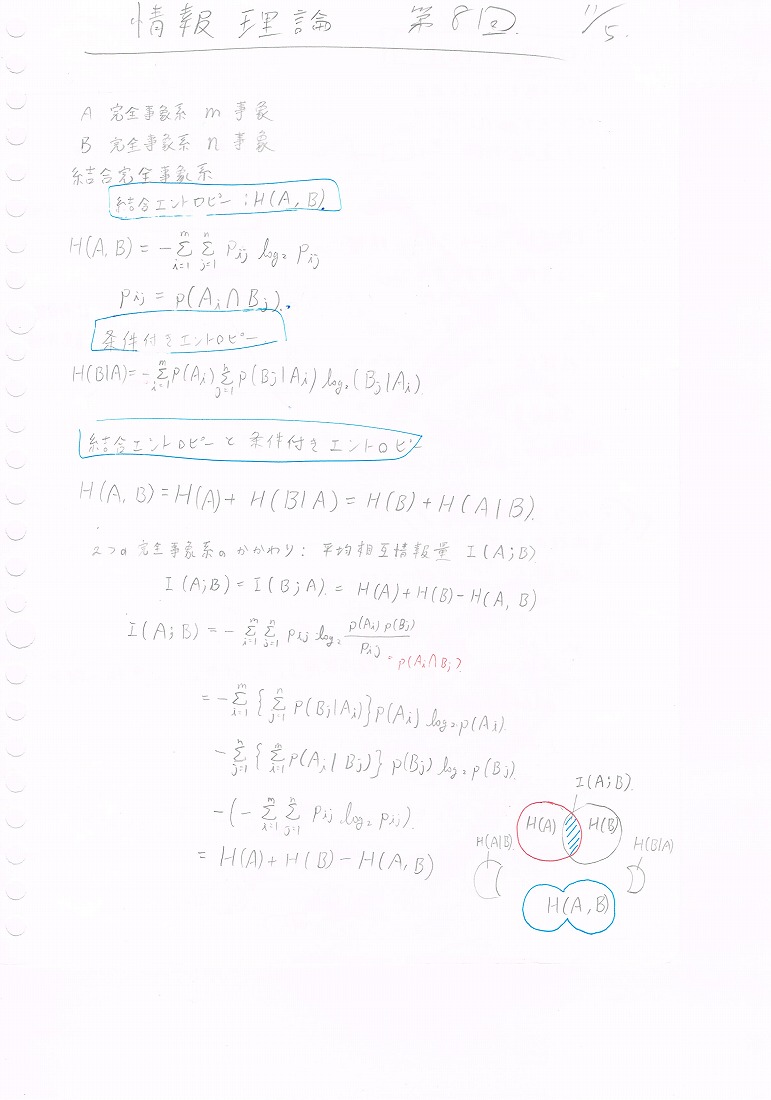 情報理論 第8回 11/5.
A 完全事象系 m 事象
B 完全事象系 n 事象
結合完全事象系
結合エントロピー : H(A, B).
H(A, B) = -Σ_{i=1}^{m} Σ_{j=1}^{n} Pij log₂ Pij
Pij = p(Ai∩Bj).
条件付きエントロピー
H(B|A) = -Σ_{i=1}^{m} P(Ai) Σ_{j=1}^{n} p(Bj|Ai) log₂(Bj|Ai)
結合エントロピーと条件付きエントロピー
H(A, B) = H(A) + H(B|A) = H(B) + H(A|B).
2つの完全事象系のかかわり: 平均相互情報量 I(A;B)
I(A;B) = I(B;A). = H(A)+H(B)-H(A, B)
I(A;B) = -Σ_{i=1}^{m} Σ_{j=1}^{n} pij log₂ p(Ai)p(Bj)/Pij = p(Ai∩Bj).
= -Σ_{i=1}^{m} {Σ_{j=1}^{n} P(Bj|Ai)} p(Ai) log₂ p(Ai).
-Σ_{j=1}^{n} {Σ_{i=1}^{m} P(Ai|Bj)} p(Bj) log₂ p(Bj).
-(-Σ_{i=1}^{m} Σ_{j=1}^{n} Pij log₂ pij).
= H(A)+H(B)-H(A, B)
I(A;B).
H(A) H(B)
H(A|B). H(B|A)
H(A, B)